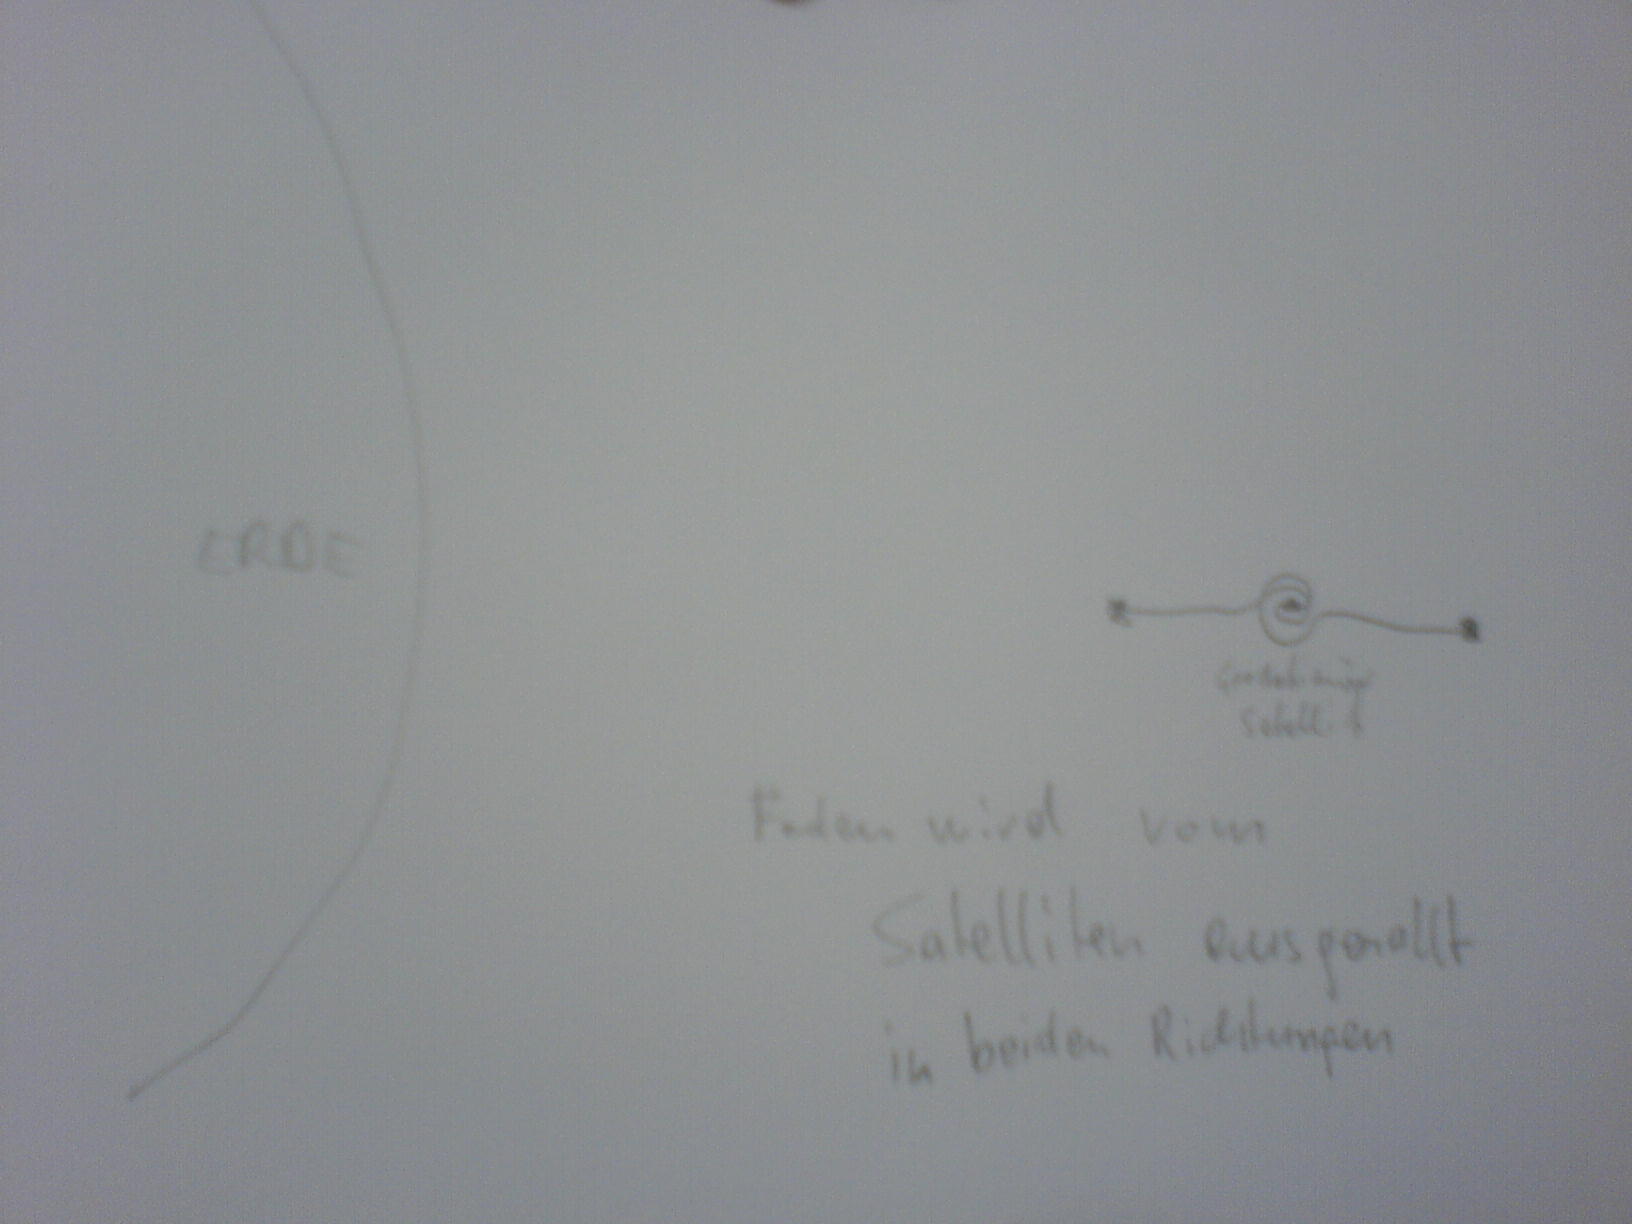 ERDE
Satellit
Faden wird vom
Satelliten ausgerollt
in beiden Richtungen